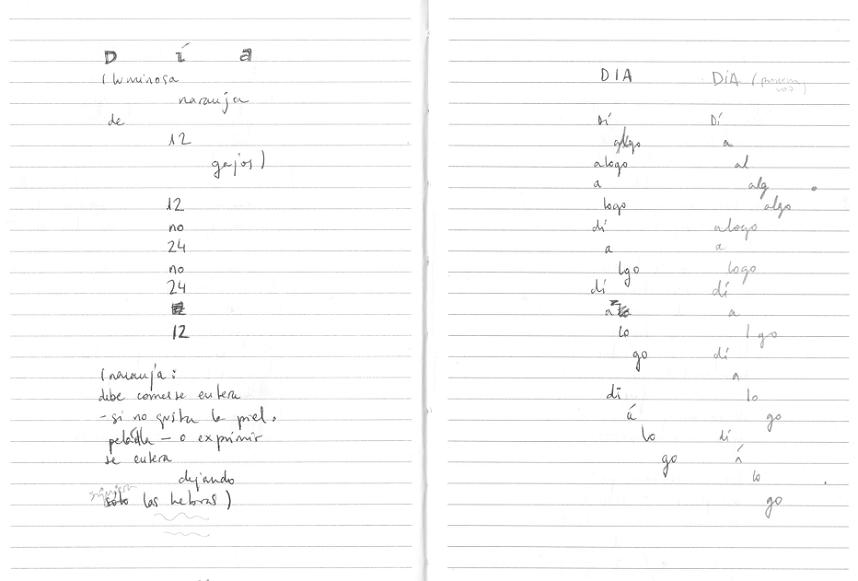 D í a
(luminosa
naranja
de
12
gajos)
12
no
24
no
24
12
(naranja:
debe comerse entera
- si no gusta la piel,
peladla - o exprimir
se entera
dejando
sólo las hebras)
DIA
Dí
algo
alogo
a
logo
dí
a
lgo
dí
a
lo
go
dí
á
lo
go
DIA (
Dí
a
al
alg
algo
alogo
a
logo
dí
a
l go
dí
a
lo
go
dí
á
lo
go